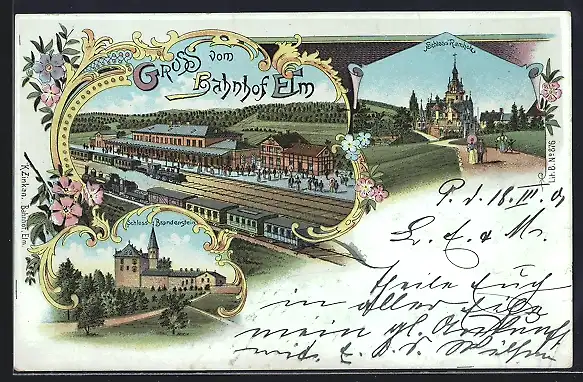 Gruss vom
Bahnhof Elm
Schloss Ramholz
Schloss Brandenstein
K. Zinkan. Bahnhof Elm.
Lith. B. No 876
P. d. 18. IV. 01
L. E. & M.
Theile Euch
in aller Eile
mein gl. Ankunft
mit.